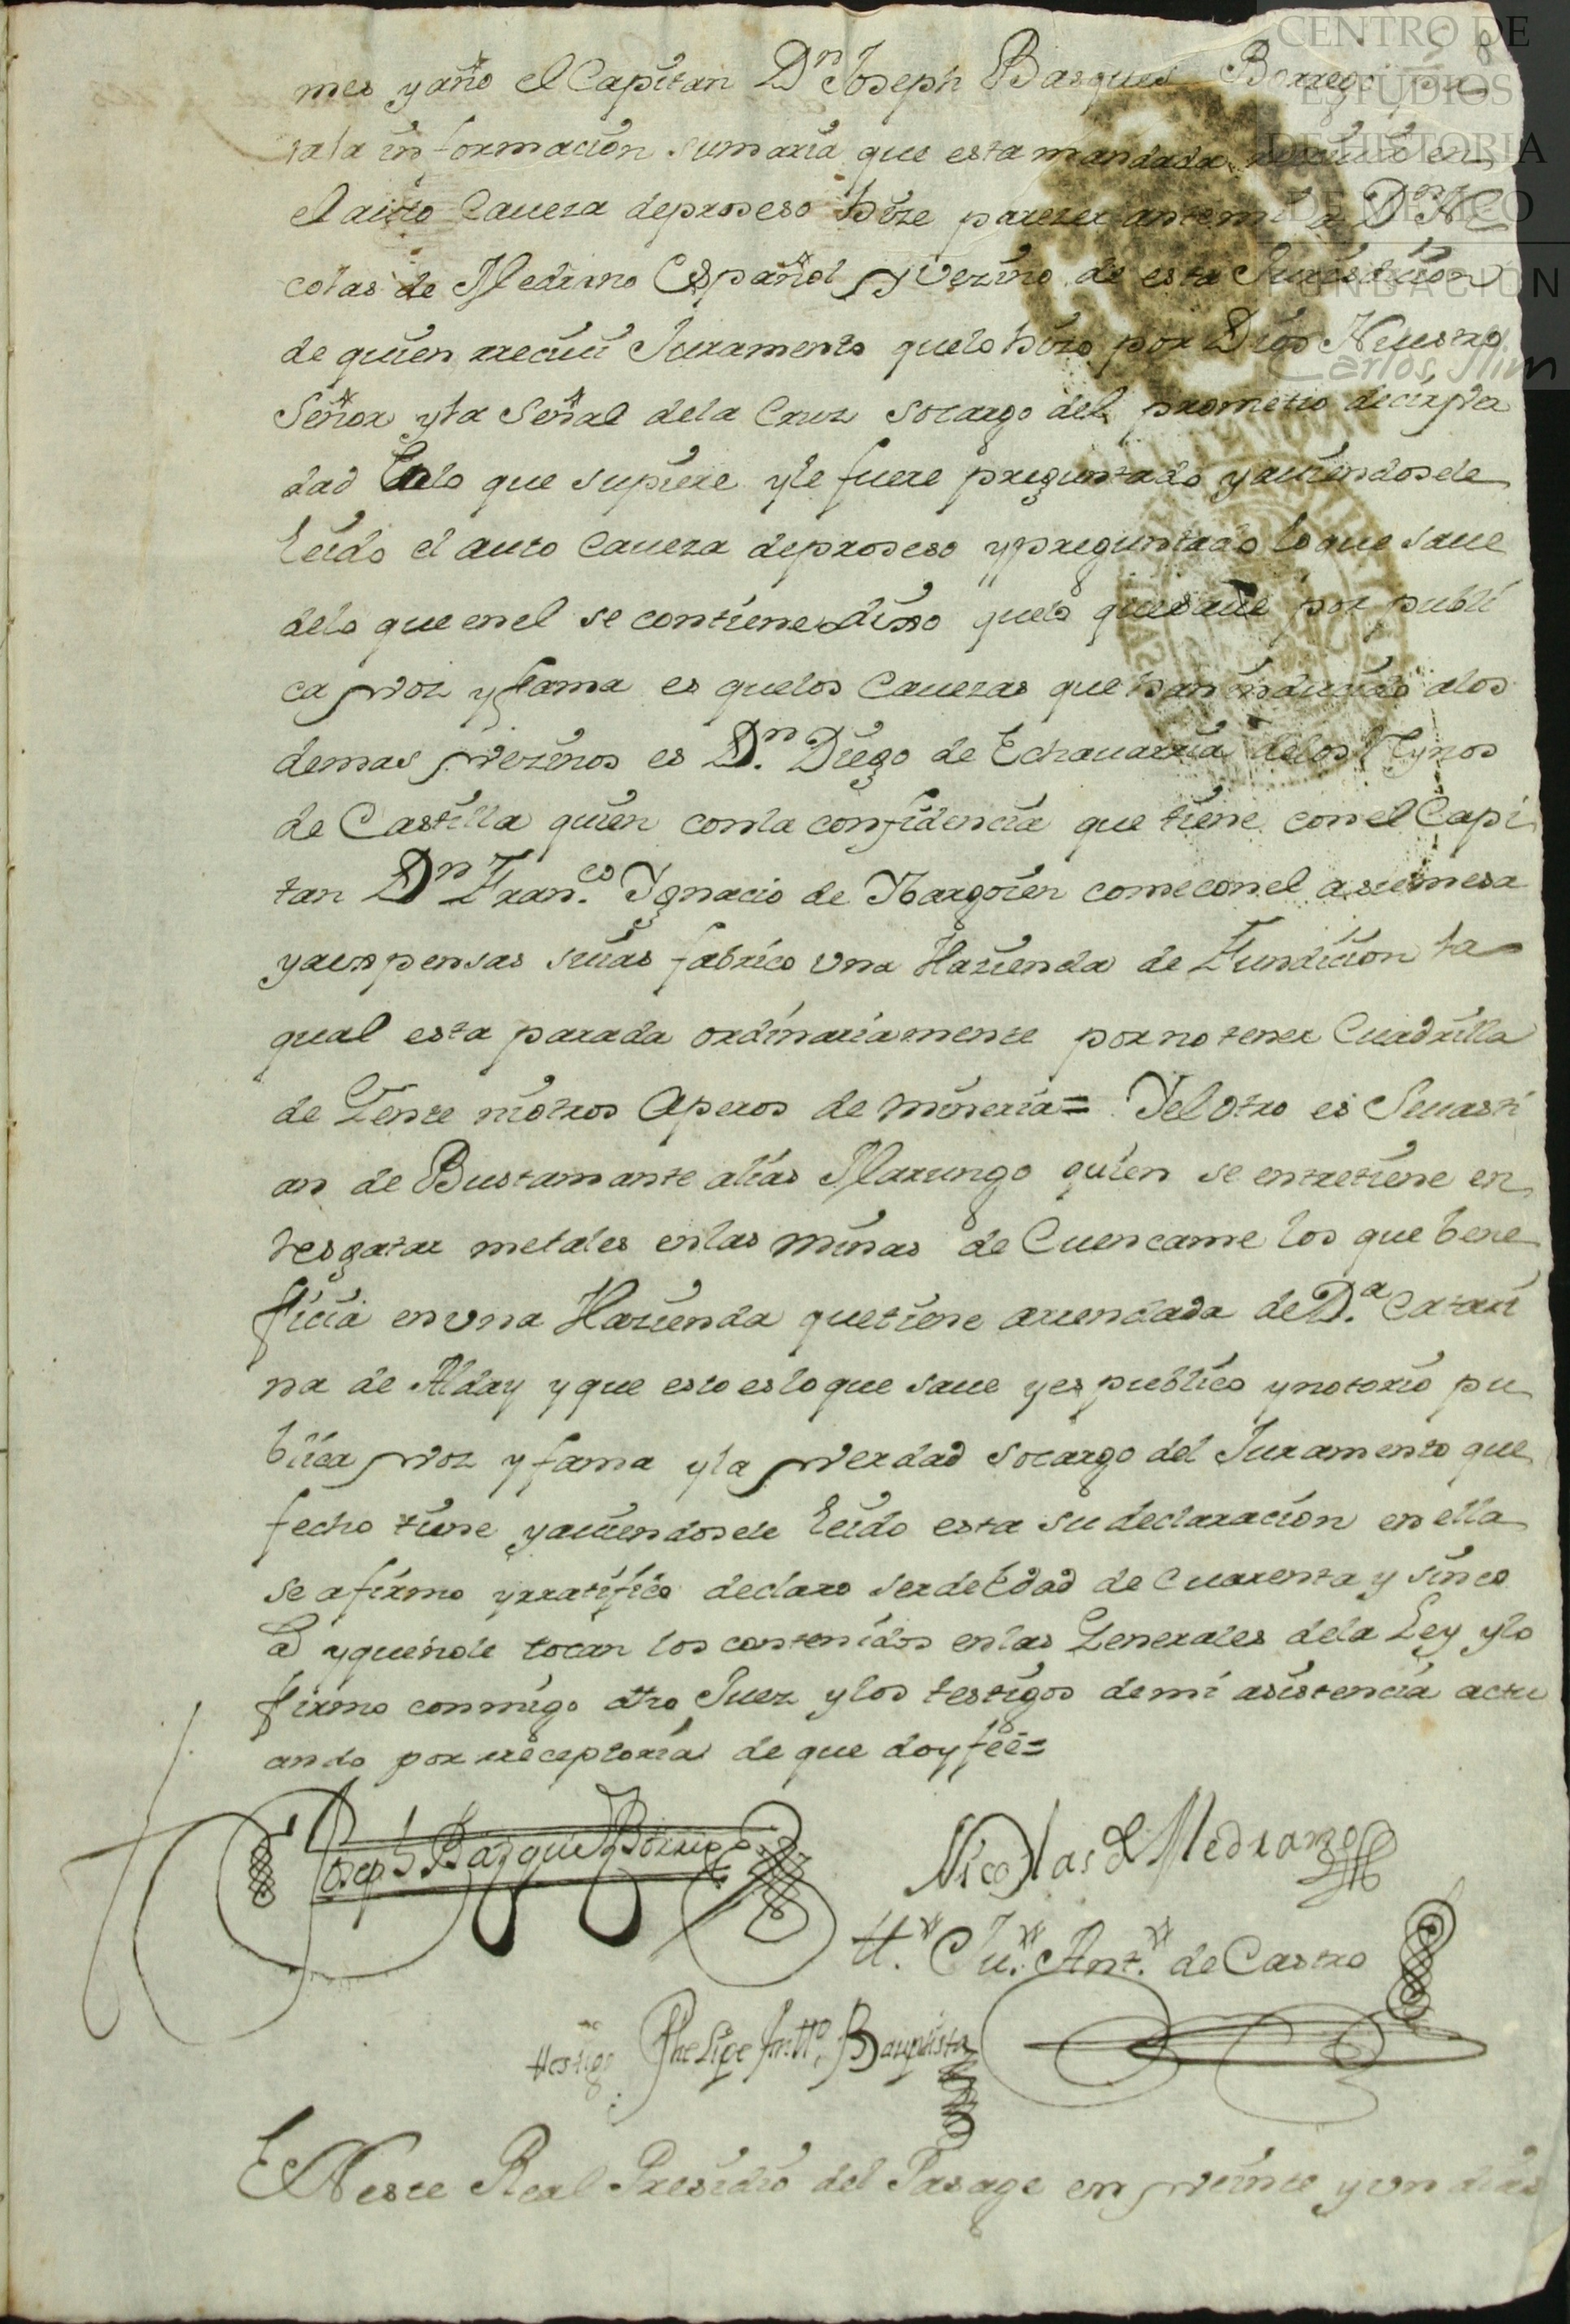 CENTRO DE
ESTUDIOS
DE HISTORIA
DE MÉXICO
FUNDACIÓN
Carlos Slim
mes y año el Capitan Dn Joseph Basques Borrego pa
rala informacion sumaria que esta mandada en
el auto Caueza deproseso hize parezer antemi a Dn Ni
colas de Medrano Español y vezino de esta Jurisdicion
de quien rreciui Juramento quelo hizo por Dios Nuestro
Señor yla Señal dela Cruz socargo del prometio decir ver
dad delo que supiere yle fuere preguntado yauiendosele
leido el auto Caueza deproseso ypreguntado loque saue
delo que enel se contiene dixo quelo quesaue por publi
ca voz y fama es quelos Cauezas que han induzido alos
demas vezinos es Dn. Diego de Echauarria delos Rynos
de Castilla quien conla confidencia que tiene conel Capi
tan Dn Franco. Ygnacio de Ybargoien comeconel asumesa
yaexpensas suias fabrico vna Hazienda de Fundicion la
qual esta parada ordinariamente por no tener Cuadrilla
de Gente niotros Aperos de mineria= Yel otro es Seuasti
an de Bustamante alias Marungo quien se entretiene en
resgatar metales enlas minas de Cuencame los que bene
ficia envna Hazienda quetiene arrendada de Da. Catari
na de Alday y que esto esloque saue yes publico ynotorio pu
blica voz y fama yla verdad socargo del Juramento que
fecho tiene yauiendosele leido esta su declaracion en ella
se afirmo yrratifico declaro serdeEdad de Cuarenta y sinco
as yquenole tocan los contenidos enlas Generales dela Ley ylo
firmo conmigo dho Juez ylos testigos demi asistencia actu
ando por rreceptoria de que doy fee=
Joseph Bazquez Borrego
Nicolas de Medrano
tto. Ju. Antto. de Castro
ttestigo Phelipe Antto. Baupista
ENeste Real Presidio del Pasage en veinte y vn dias